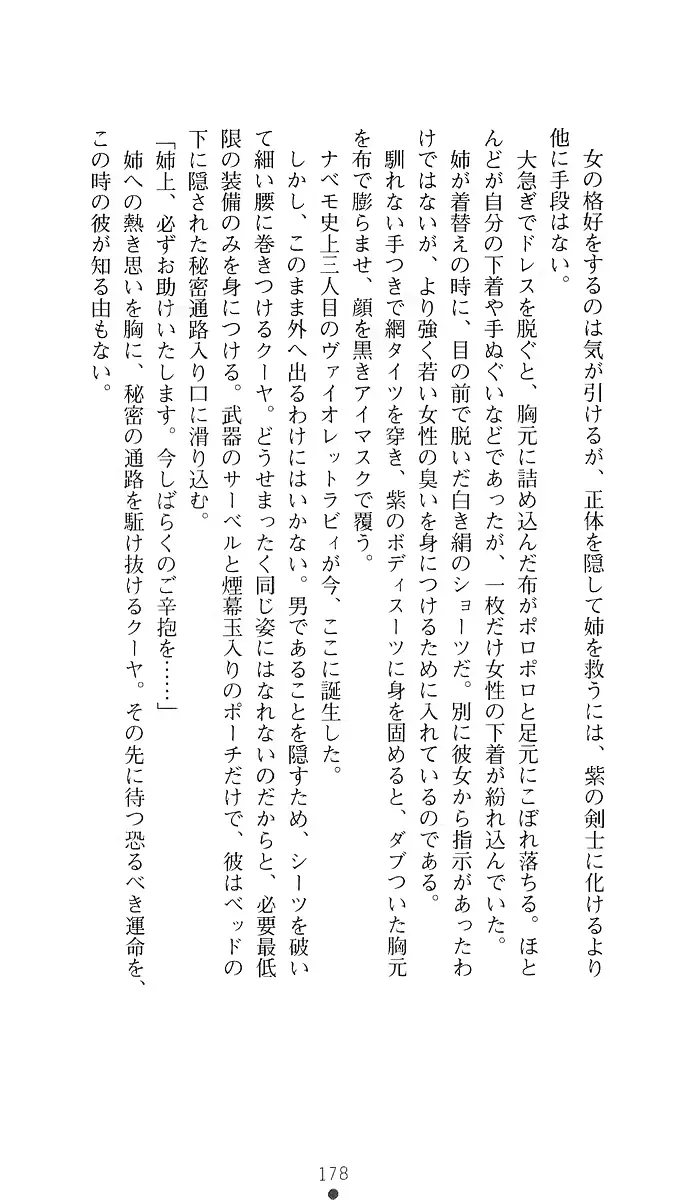 女の格好をするのは気が引けるが、正体を隠して姉を救うには、紫の剣士に化けるより
他に手段はない。
大急ぎでドレスを脱ぐと、胸元に詰め込んだ布がポロポロと足元にこぼれ落ちる。ほと
んどが自分の下着や手ぬぐいなどであったが、一枚だけ女性の下着が紛れ込んでいた。
姉が着替えの時に、目の前で脱いだ白き絹のショーツだ。別に彼女から指示があったわ
けではないが、より強く若い女性の臭いを身につけるために入れているのである。
馴れない手つきで網タイツを穿き、紫のボディスーツに身を固めると、ダブついた胸元
を布で膨らませ、顔を黒きアイマスクで覆う。
ナベモ史上三人目のヴァイオレットラビィが今、ここに誕生した。
しかし、このまま外へ出るわけにはいかない。男であることを隠すため、シーツを破い
て細い腰に巻きつけるクーヤ。どうせまったく同じ姿にはなれないのだからと、必要最低
限の装備のみを身につける。武器のサーベルと煙幕玉入りのポーチだけで、彼はベッドの
下に隠された秘密通路入り口に滑り込む。
「姉上、必ずお助けいたします。今しばらくのご辛抱を……」
姉への熱き思いを胸に、秘密の通路を駈け抜けるクーヤ。その先に待つ恐るべき運命を、
この時の彼が知る由もない。
178